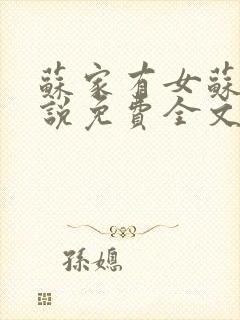 蘇家有女蘇
說免費全文
孫媳